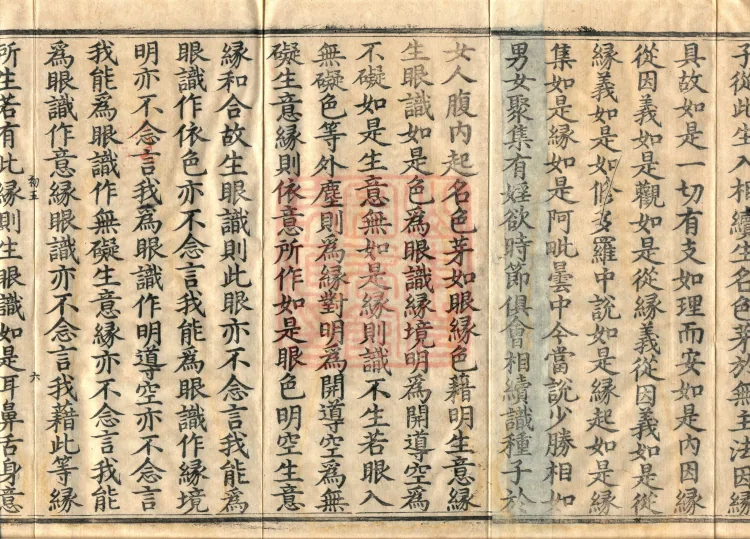 子從此生入相續生名色芽於無主法因緣
具故如是一切有支如理而安如是內因緣
從因義如是觀如是從緣義從因義如是從
緣義如是如脩多羅中說如是緣起如是緣
集如是緣如是阿毗曇中今當說少勝相如
男女聚集有婬欲時節俱會相續識種子於
女人腹內起名色芽如眼緣色藉明生意緣
生眼識如是色爲眼識緣境明爲開導空爲
不礙如是生意無如是緣則識不生若眼入
無礙色等外塵則爲緣對明爲開導空爲無
礙生意緣則依意所作如是眼色明空生意
緣和合故生眼識則此眼亦不念言我能爲
眼識作依色亦不念言我能爲眼識作緣境
明亦不念言我爲眼識作明導空亦不念言
我能爲眼識作無礙生意緣亦不念言我能
爲眼識作意緣眼識亦不念言我藉此等緣
初五 六
所生若有此緣則生眼識如是耳鼻舌身意